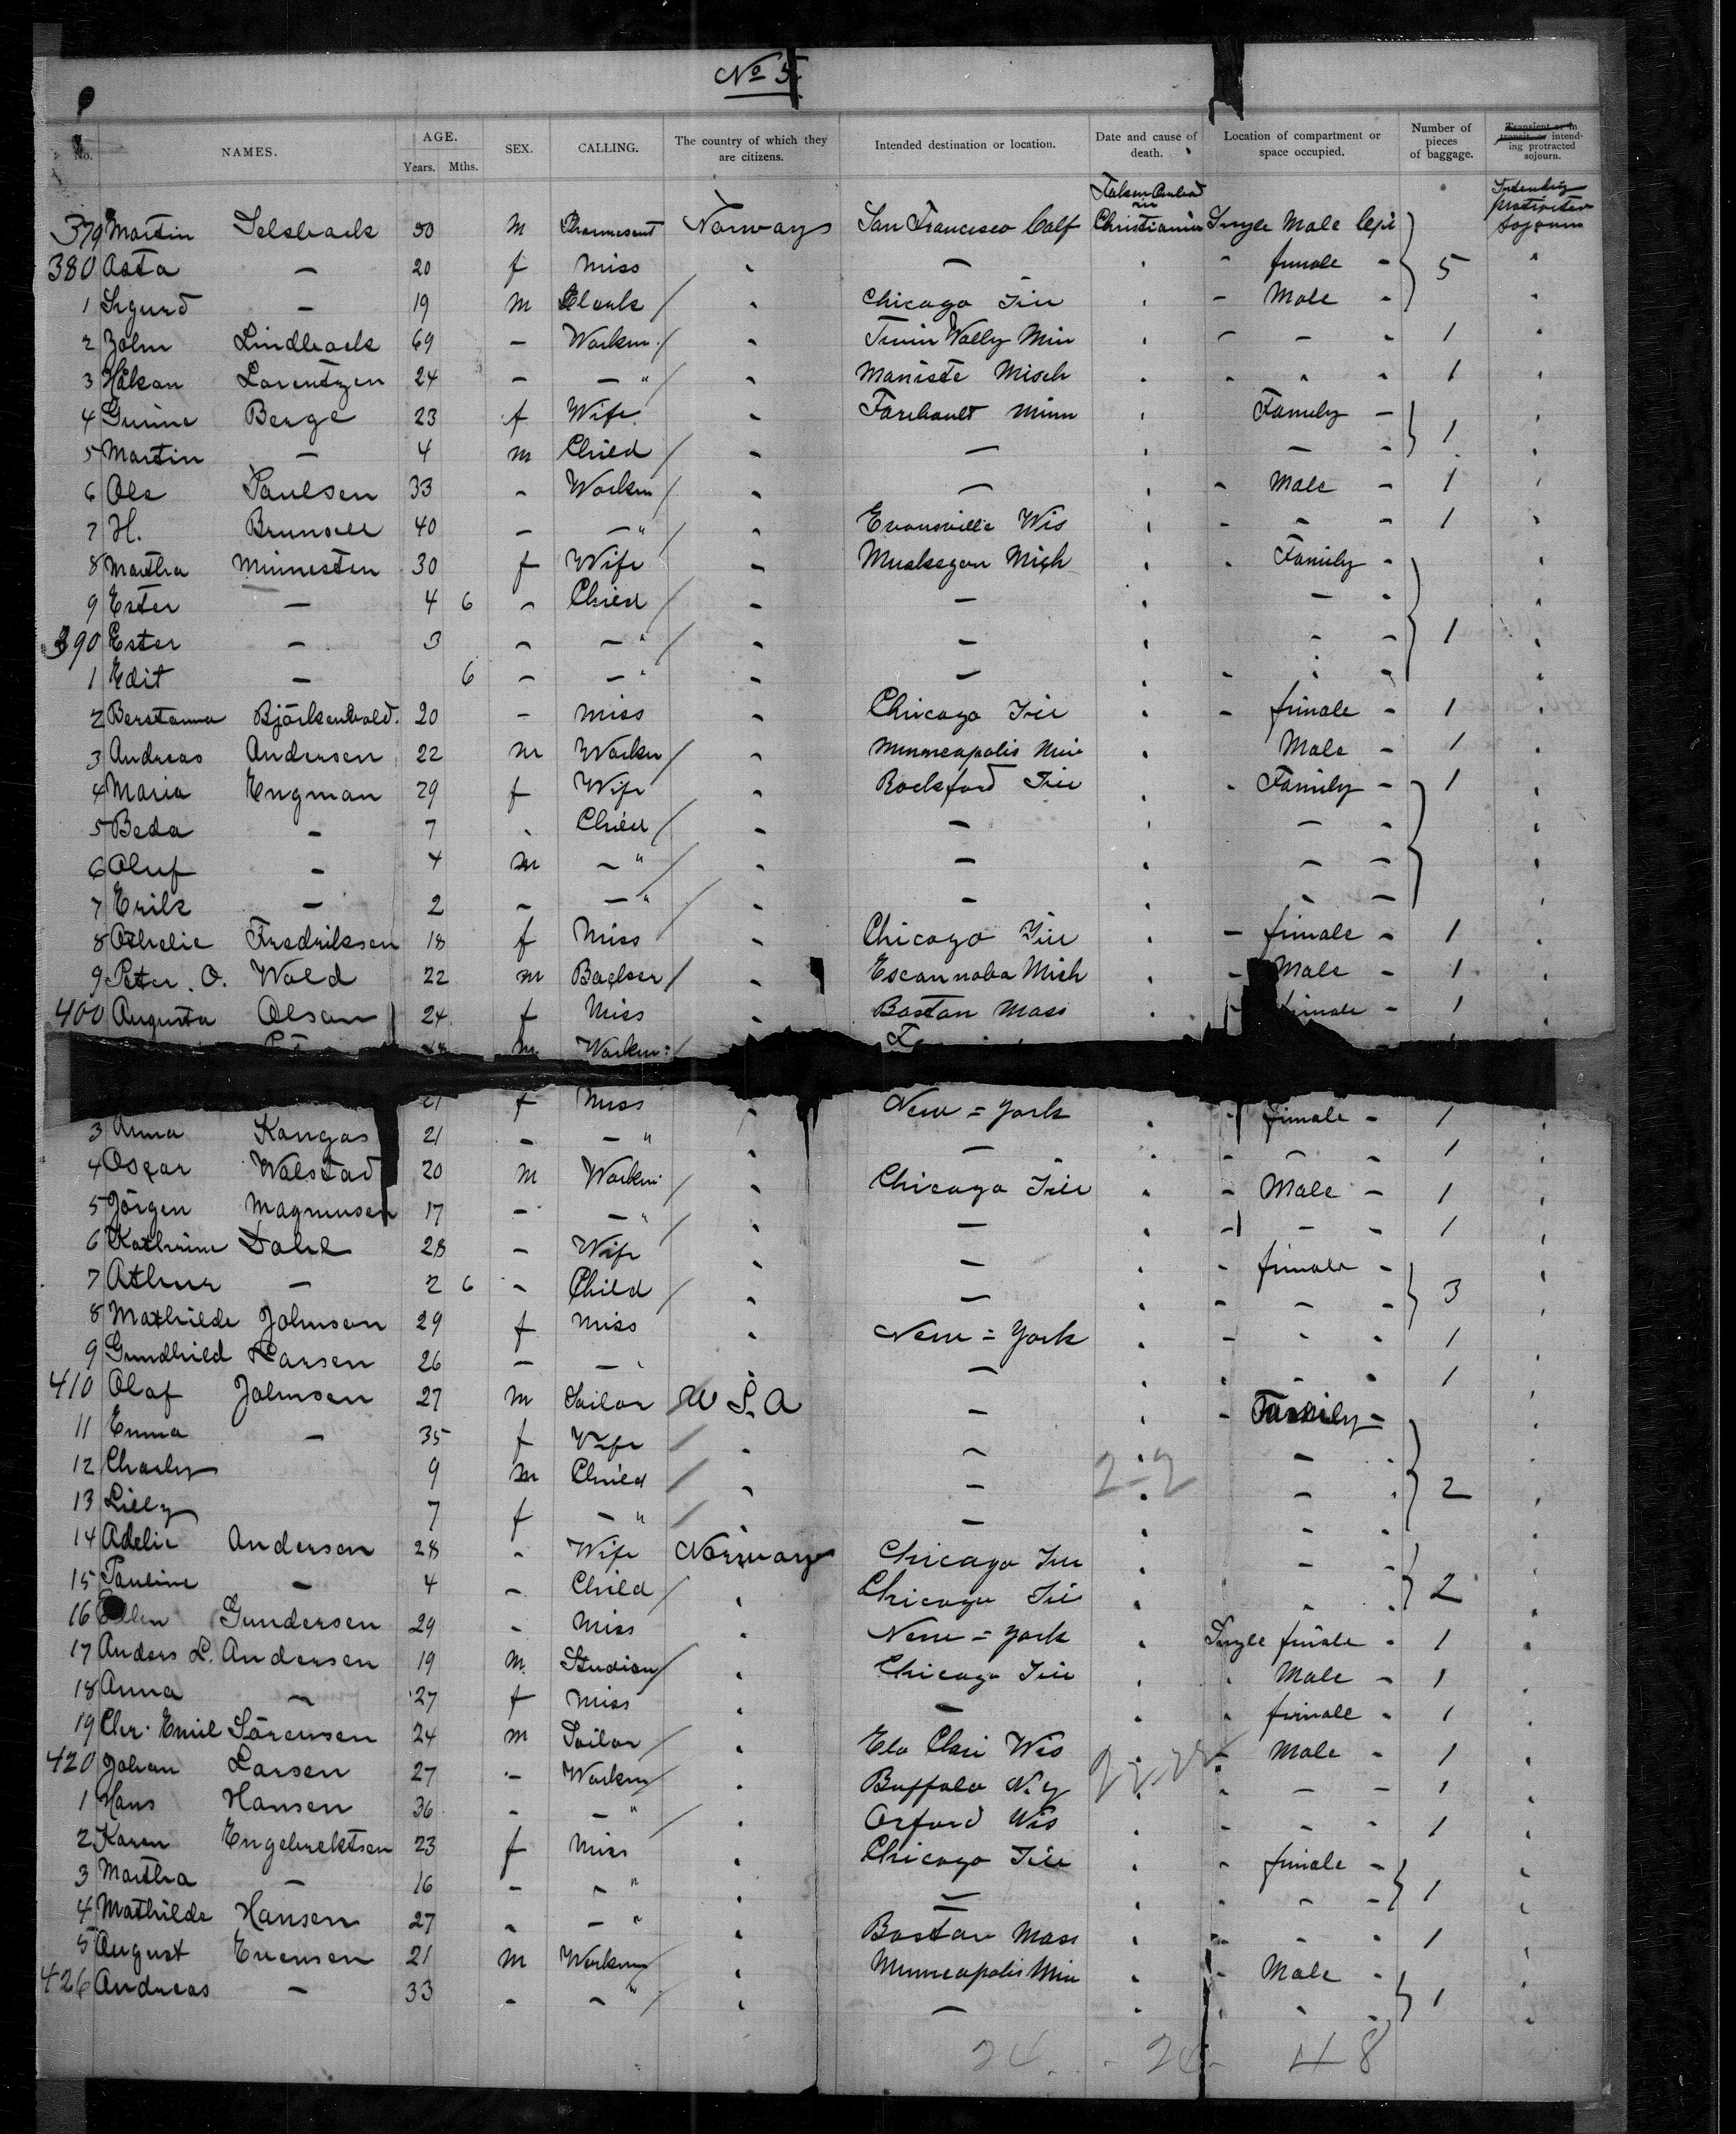 No 5.
No. NAMES. AGE. Years. Mths. SEX. CALLING. The country of which they are citizens. Intended destination or location. Date and cause of death. Location of compartment or space occupied. Number of pieces of baggage. Transient or in transit or intending protracted sojourn.
379 Martin 50 M Norway San Francisco Calf Christiania Single Male 5 Intending sojourn
380 Asta — 20 f Miss — female
1 Sigurd — 19 M Clerk / Chicago Ill — Male
2 Lindback 69 — Workm / — — 1
3 Håkan Lorentzen 24 — — " Maniste Misch 1
4 Berge 23 f Wife Faribault Minn Family — 1
5 Martin — 4 m Child / — — —
6 Ole Paulsen 33 Workm / — Male — 1
7 H. 40 — — " / Evansville Wis — 1
8 Martha Minnesten 30 f Wife Muskegon Mich Family 1
9 Ester — 4 6 Child / — —
390 Ester — 3 — " / —
1 Edit — 6 — — " —
2 20 — Miss Chicago Ill — female — 1
3 Andreas Andersen 22 m Workm / Minneapolis Min Male — 1
4 Maria Engman 29 f Wife Rockford Ill Family — 1
5 Beda — 7 Child / — —
6 Oluf — 4 m — " / — —
7 Erik — 2 — — " / —
8 Fredriksen 18 f Miss Chicago Ill — female — 1
9 Peter O. Wold 22 m / Escannaba Mich — Male — 1
400 Augusta Olsen 24 f Miss Boston Mass female — 1
m Workm /
21 f Miss New = York female — 1
3 Anna Kangas 21 — — " — — 1
4 Oscar Wolstad 20 m Workm / Chicago Ill — Male — 1
5 Jörgen Magnusen 17 — — " / — — 1
6 Kathrine Dahl 28 — Wife — female — 3
7 — 2 6 — Child / — —
8 Mathilde Johnson 29 f Miss New = York — 1
9 Gundhild Larsen 26 — — " — 1
410 Olaf Johnsen 27 m Sailor / U S. A — — Family — 2
11 Emma — 35 f Wife / — —
12 Charley 9 m Child / — — 2-2
13 Lilly 7 f — " / —
14 Adelie Andersen 28 Wife Norway Chicago Ill — 2
15 Pauline — 4 — Child / Chicago Ill
16 Gundersen 29 — Miss New = York Single female 1
17 Anders L. Andersen 19 m. / Chicago Ill Male — 1
18 Anna — 27 f Miss — female — 1
19 Chr. Emil Sörensen 24 m Sailor / Elo Clari Wis Male — 1
420 Johan Larsen 27 — Workm / Buffalo N.y — — 1
1 Hans Hansen 36 — — " / Orford Wis 1
2 Karen Engebrektsen 23 f Miss Chicago Ill female — 1
3 Martha — 16 — — " —
4 Mathilde Hansen 27 — " Boston Mass 1
5 August Evensen 21 m Workm / Minneapolis Min Male 1
426 Andreas — 33 — " / —
24 - 24 - 48